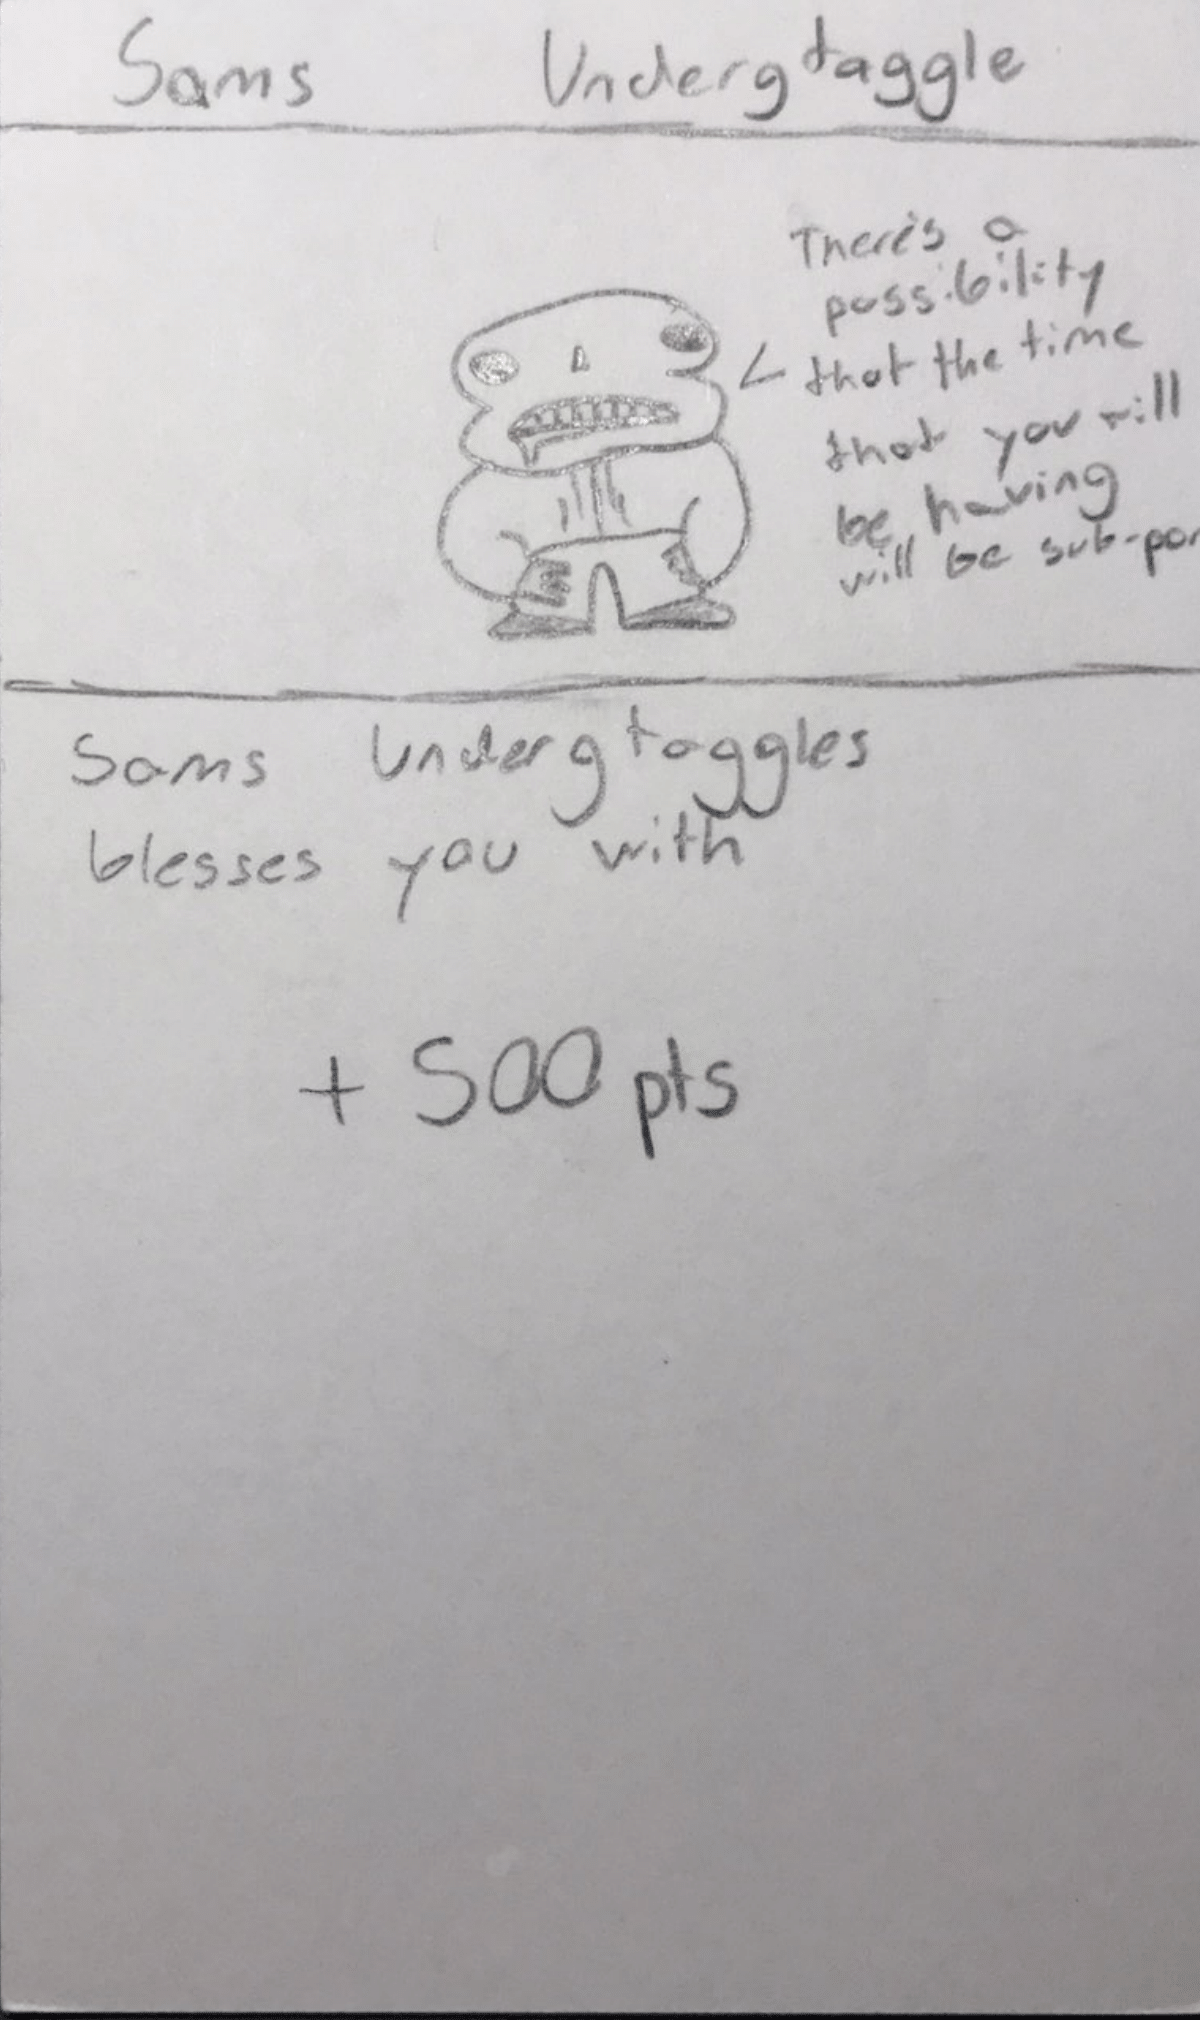 Sams Undergtaggle
There's a
possibility
< that the time
that you will
be having
will be sub-par
Sams Undergtoggles
blesses you with
+ 500 pts